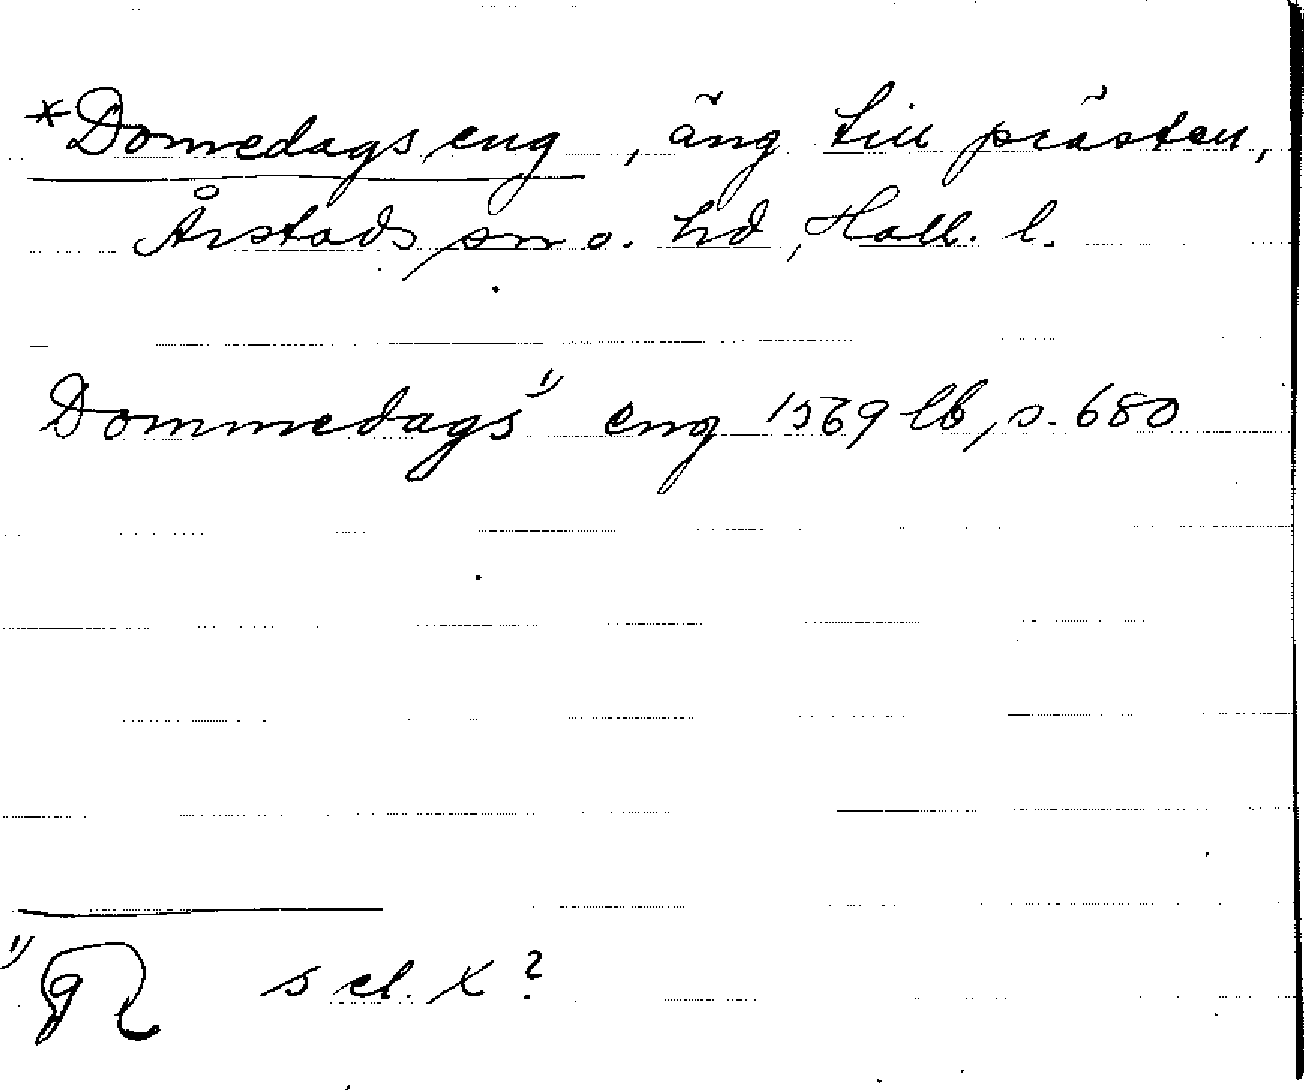 *Domedags eng, äng till prästen,
Årstads sn o. hd, Hall. l.
Dommedags¹⁾ eng 1569 lb, s. 680
¹⁾ g s el. x?